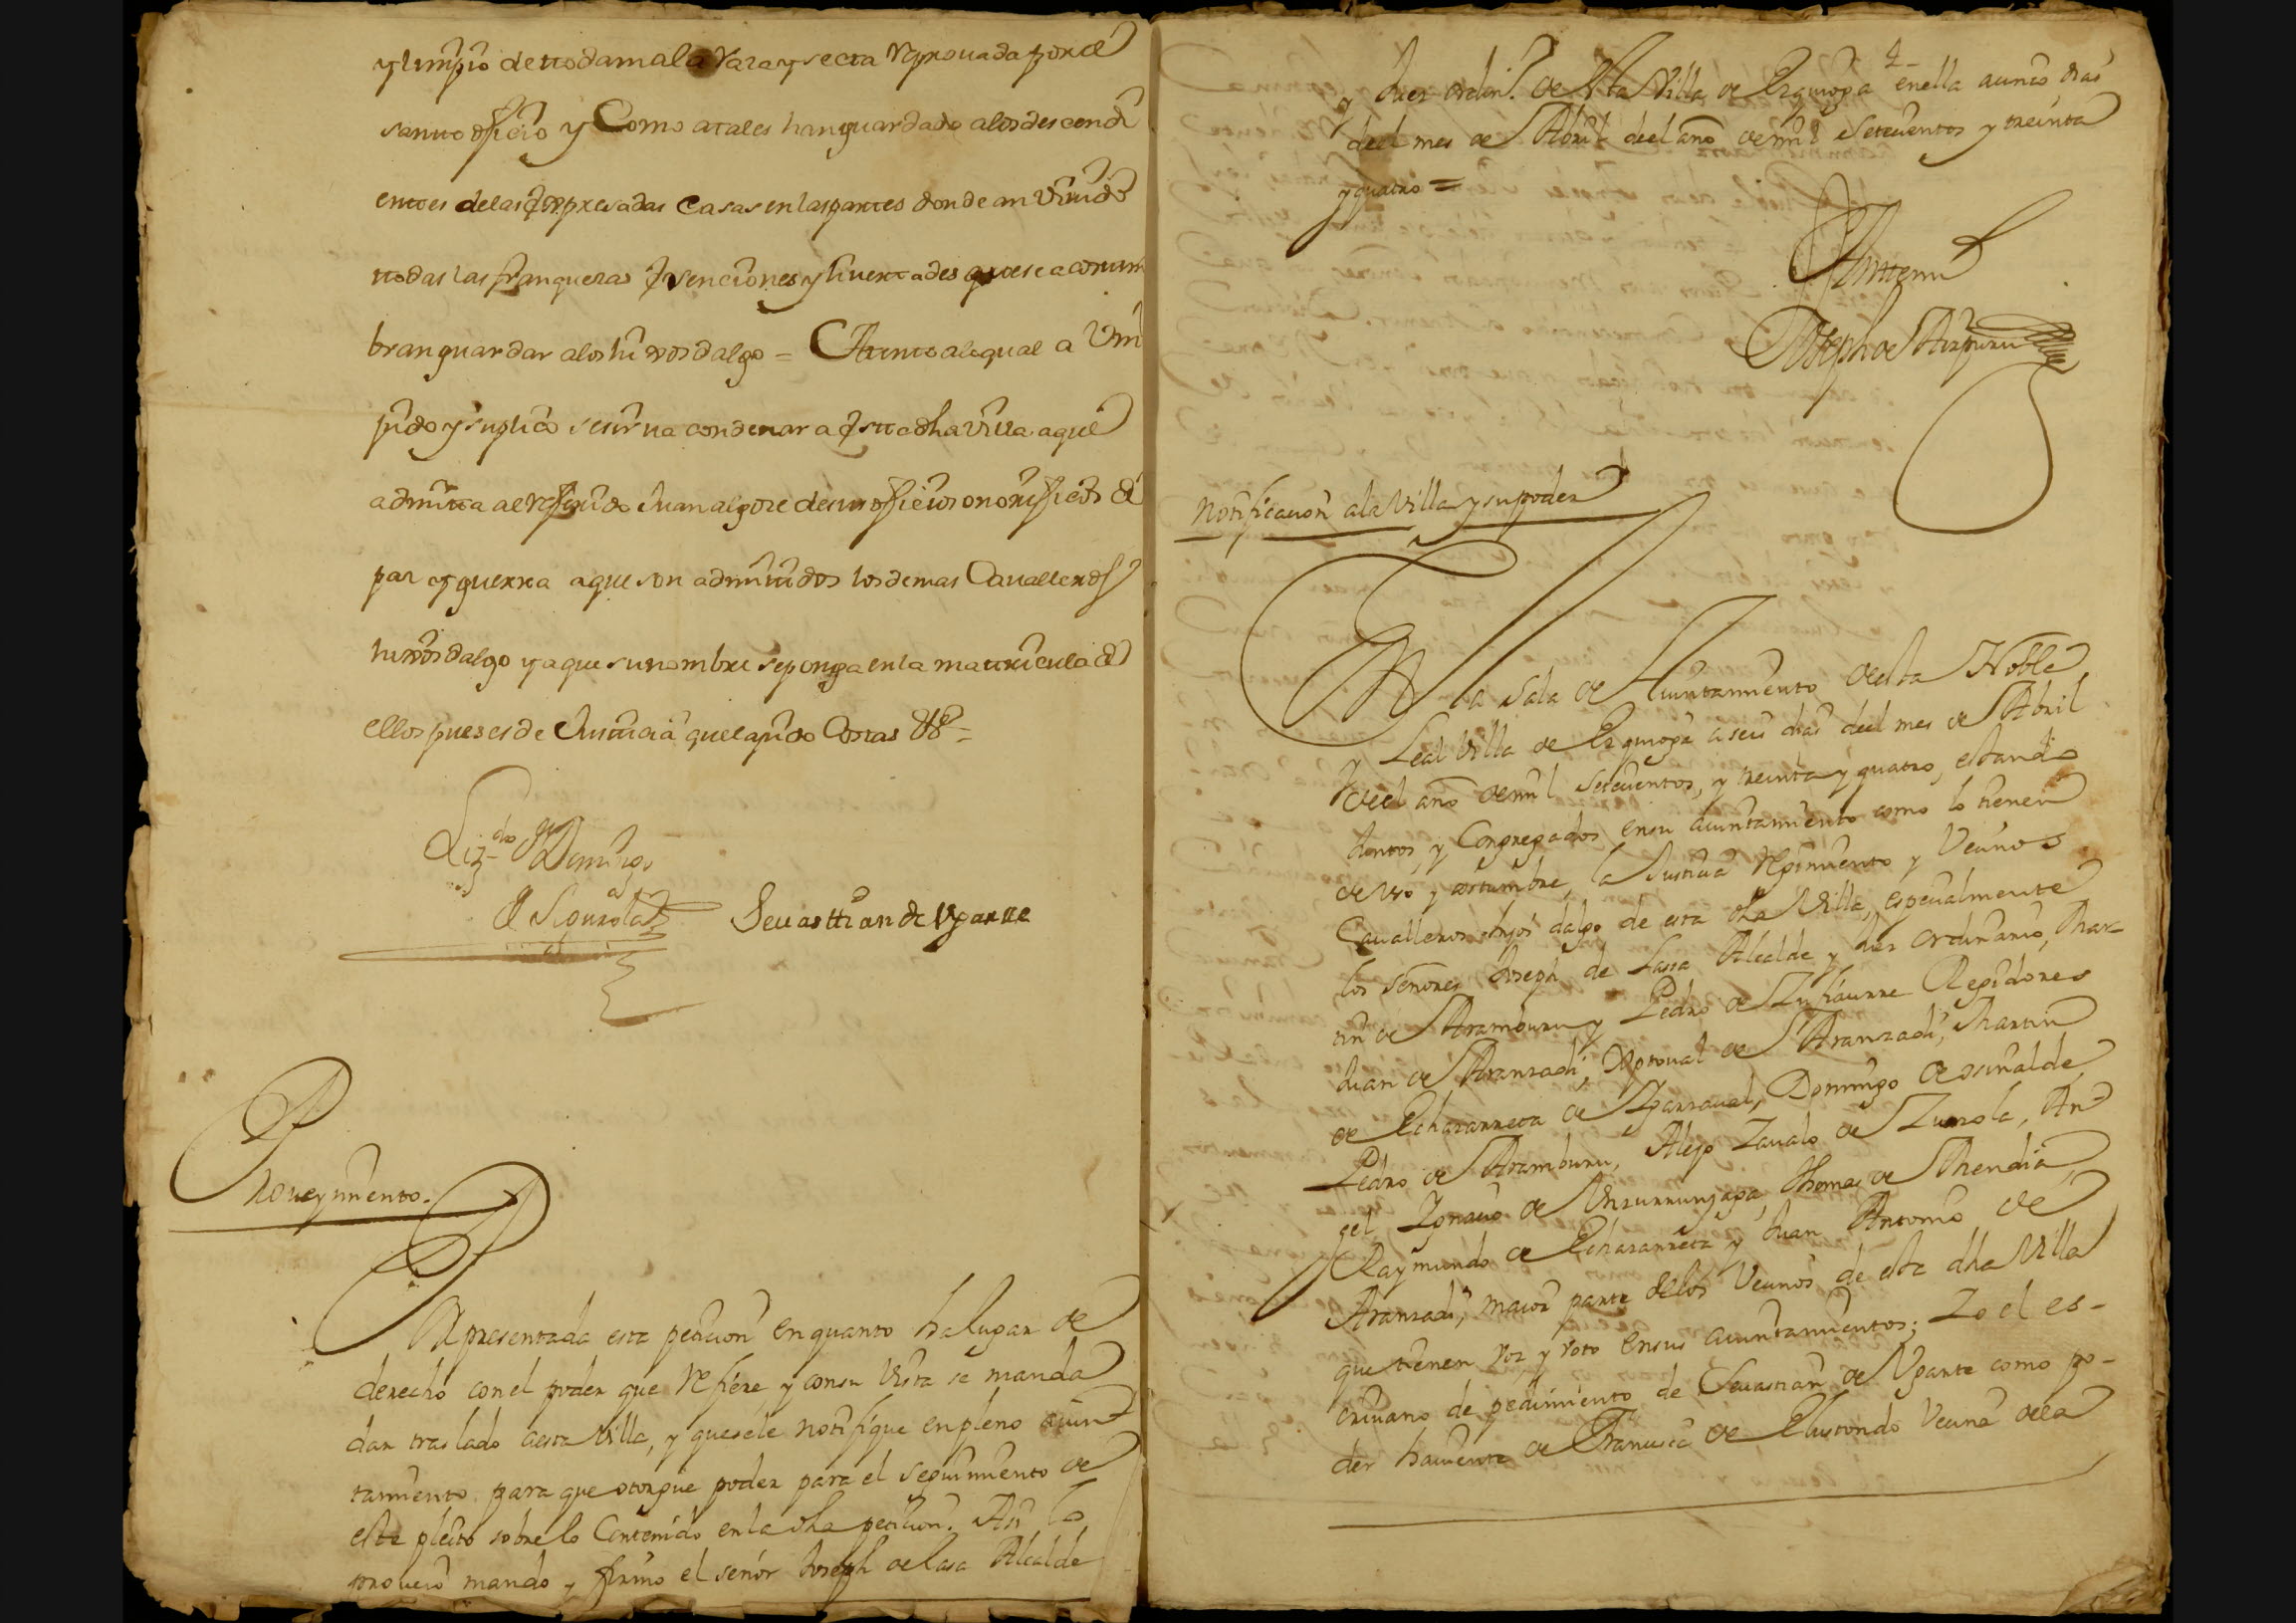 y limpio de ttoda mala raza y secta reprouada por el
santto oficio y Como a tales han guardado a los descendi
enttes de las expresadas Casas en las parttes donde an viuido
ttodas las franquezas exsenciones y liuerttades que se acosttum
bran guardar a los hixosdalgo = Atento a lo qual a Vm
pido y suplico se sirua condenar a estta dha villa a que
admitta al referido Juan al goze de sus oficios onorificos de
paz y guerra a que son admitidos los demas Caualleros
hixosdalgo y a que su nombre se ponga en la mattricula de
ellos pues es de Justicia que la pido Costas &ª =
Lizdo Dn Domingo
de Sigurola
Seuasttian de Ugartte
Proueymiento.
Representada esta peticion en quanto ha lugar de
derecho con el poder que refiere, y con su vista se manda
dar traslado a esta Villa, y que se le notifique en pleno aiun-
tamiento para que otorgue poder para el seguimiento de
este pleito sobre lo Contenido en la dha peticion. Asi lo
proueio mando y firmo el señor Joseph de Lasa Alcalde
y Juez ordin.º de esta Villa de Ezquioga en ella a cinco dias
del mes de Abril del año de mil setecientos y treinta
y quatro =
Antemi
Joseph de Aizpuru
Notificacion a la Villa y su poder
En la Sala de Aiuntamiento de esta Noble
y Leal Villa de Ezquioga a seis dias del mes de Abril
del año de mil setecientos, y treinta y quatro, estando
Juntos, y Congregados en su aiuntamiento como lo tienen
de uso y costumbre, la Justicia regimiento y Vecinos
Caualleros hijos dalgo de esta dha Villa, especialmente
los señores Joseph de Lasa Alcalde y Juez ordinario, Mar-
tin de Aramburu y Pedro de Zufiaurre Regidores
Juan de Aranzadi, Xptoual de Aranzadi, Martin
de Echazarreta de Igarzaual, Domingo de osinalde
Pedro de Aramburu, Alejo Zaualo de Zumola, An-
gel Ignacio de Unzurrunzaga, Thomas de Mendia
Raymundo de Echazarreta y Juan Antonio de
Aranzadi, maior parte de los Vecinos de esta dha Villa
que tienen voz, y voto en sus aiuntamientos; Yo el es-
criuano de pedimiento de Seuastian de Ugarte como po-
der hauiente de Francisca de Elustondo Vecina de la